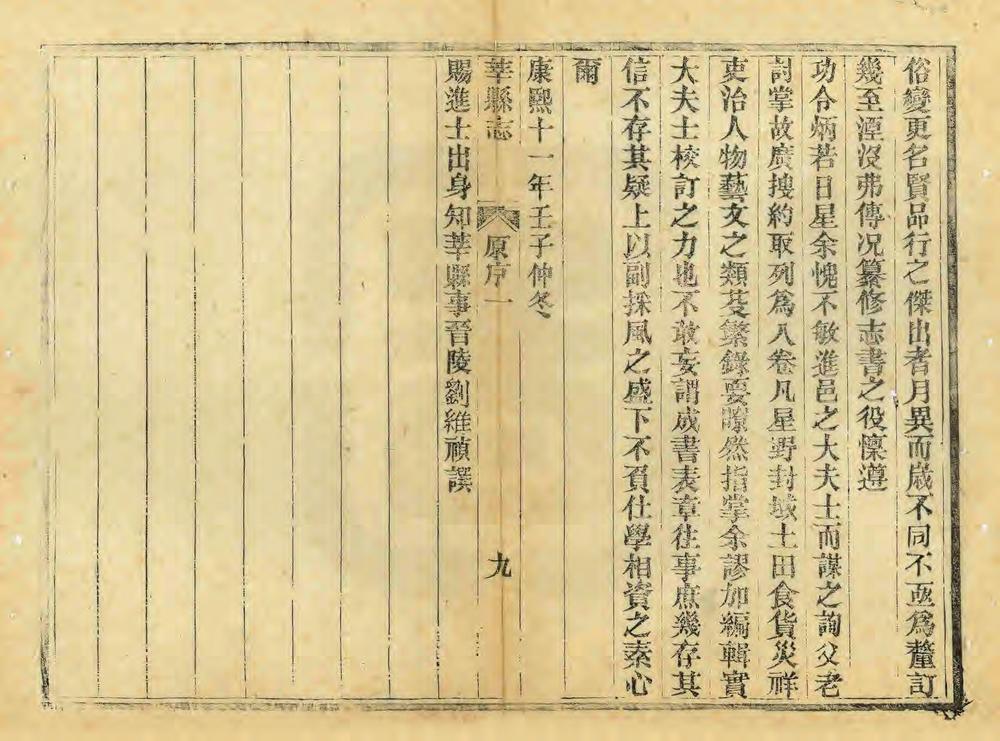 俗變更名賢品行之傑出者月異而歲不同不亟爲釐訂
幾至湮沒弗傳况纂修志書之役懍遵
功令炳若日星余愧不敏進邑之大夫士而謀之詢父老
討掌故廣搜約取列爲八卷凡星野封域土田食貨災祥
吏治人物藝文之類芟繁錄要瞭然指掌余謬加編輯實
大夫士校訂之力也不敢妄謂成書表章往事庶幾存其
信不存其疑上以副採風之盛下不負仕學相資之素心
爾
康熙十一年壬子仲冬
莘縣志 原序一 九
賜進士出身知莘縣事晉陵劉維禎譔